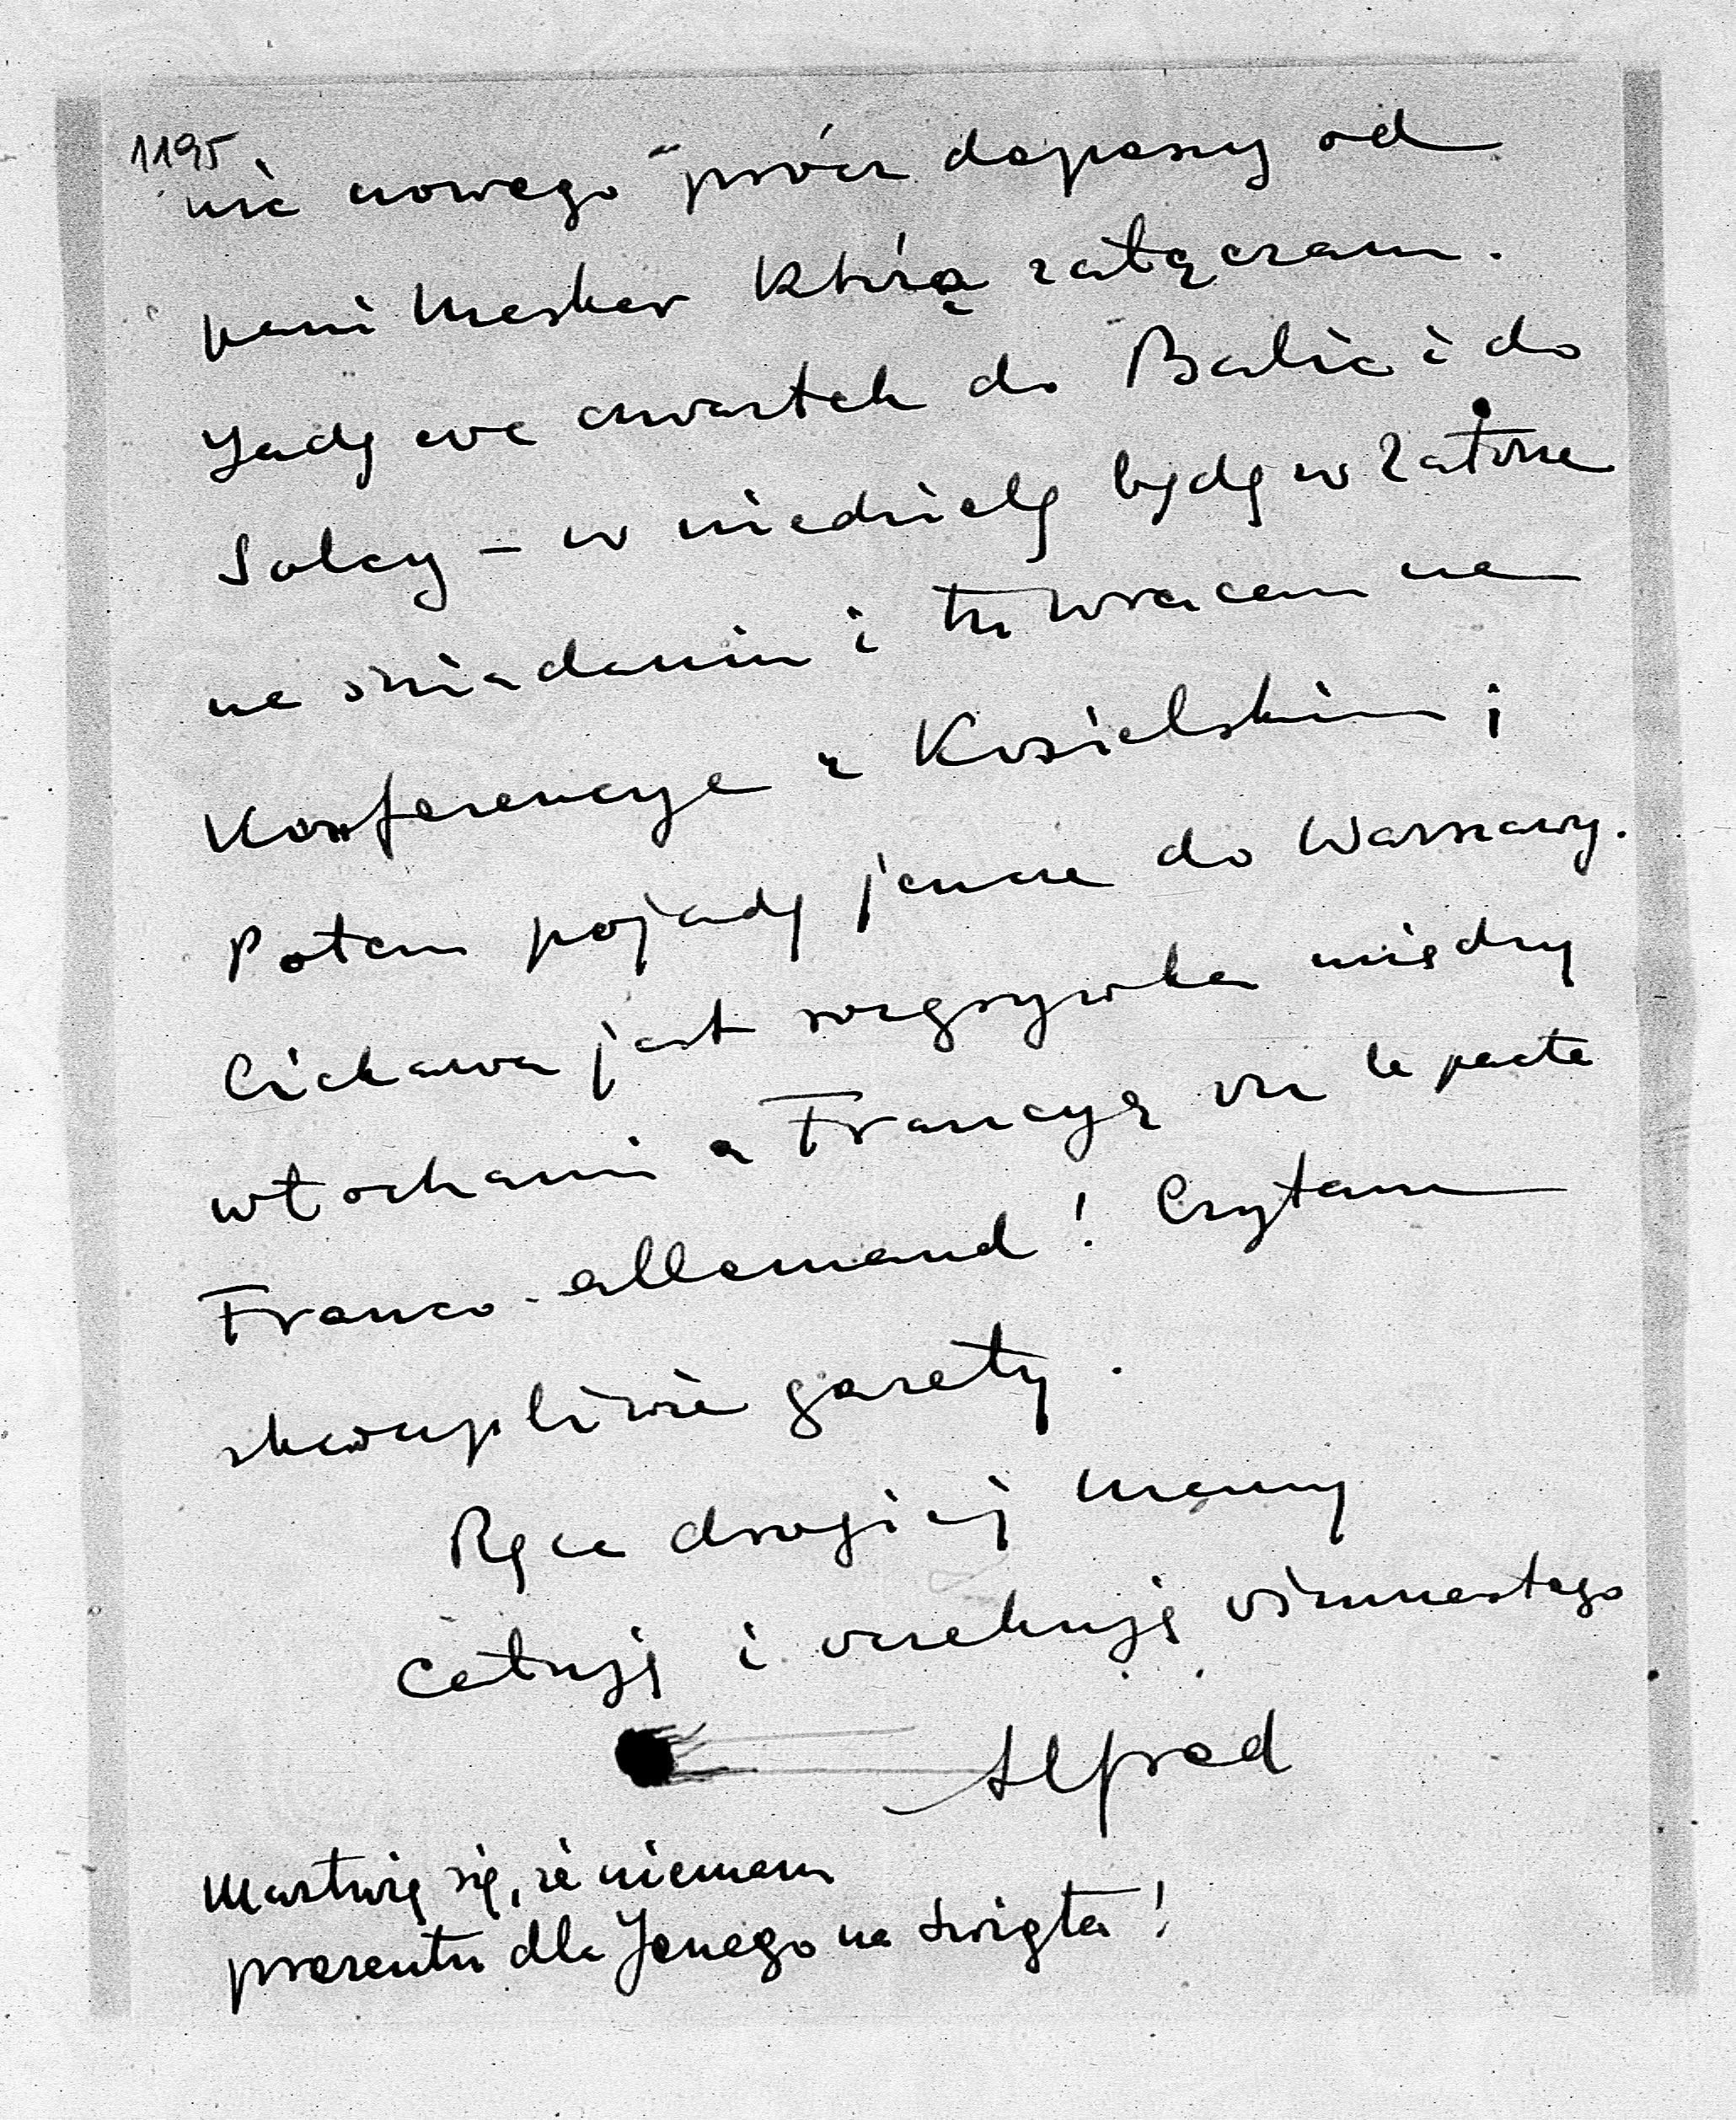 1195
nic nowego prócz depeszy od
pani Mesker którą załączam.
Jadę we czwartek do Balic i do
Solcy – w niedzielę będę w Zatorze
na śniadaniu i tu wracam na
Konferencye z Kozielskim i
Potem pojadę jeszcze do Warszawy.
Ciekawa jest rozgrywka między
Włochami a Francyą vu le pacte
Franco-allemand! Czytam
skwapliwie gazety.
Ręce drogiej Mamy
całuję i uściskuję
Alfred
Martwię się, że niemam
prezentu dla Jenego na święta!